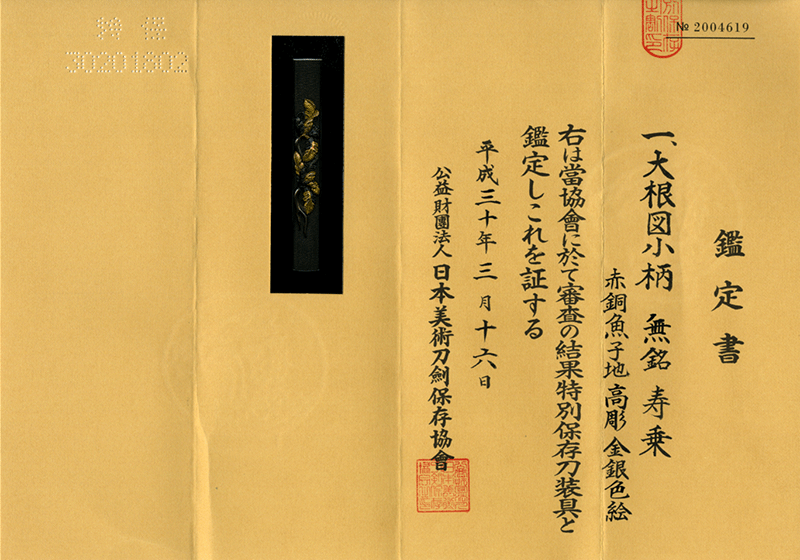 № 2004619
鑑定書
一、大根図小柄 無銘 寿乗
赤銅魚子地 高彫 金銀色絵
右は當協會に於て審査の結果特別保存刀装具と
鑑定しこれを証する
平成三十年三月十六日
公益財團法人 日本美術刀劍保存協會
特 保
30201802